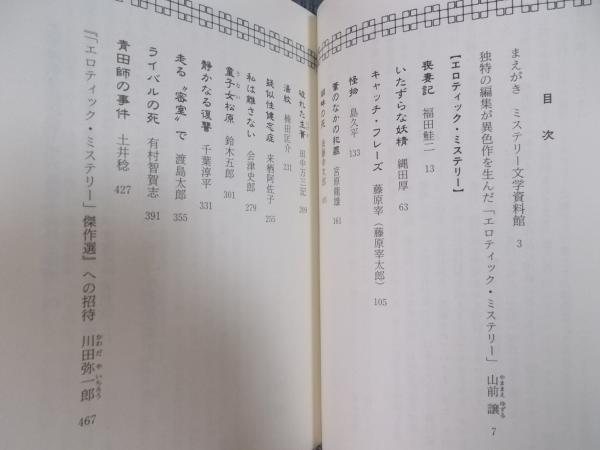 目次
まえがき　ミステリー文学資料館　3
独特の編集が異色作を生んだ「エロティック・ミステリー」　山前譲　7
やままえ　ゆずる
【エロティック・ミステリー】
喪妻記　福田鮭二　13
いたずらな妖精　縄田厚　63
キャッチ・フレーズ　藤原宰（藤原宰太郎）　105
怪物　島久平　133
蕾のなかの犯罪　宮原龍雄　161
破れた生簀　田中万三記　209
湯紋　楠田匡介　231
疑似性健忘症　来栖阿佐子　255
私は離さない　会津史郎　279
童子女松原　鈴木五郎　301
静かなる復讐　千葉淳平　331
走る“密室”で　渡島太郎　355
ライバルの死　有村智賀志　391
青田師の事件　土井稔　427
『「エロティック・ミステリー」傑作選』への招待　川田弥一郎　467
かわだ　やいちろう